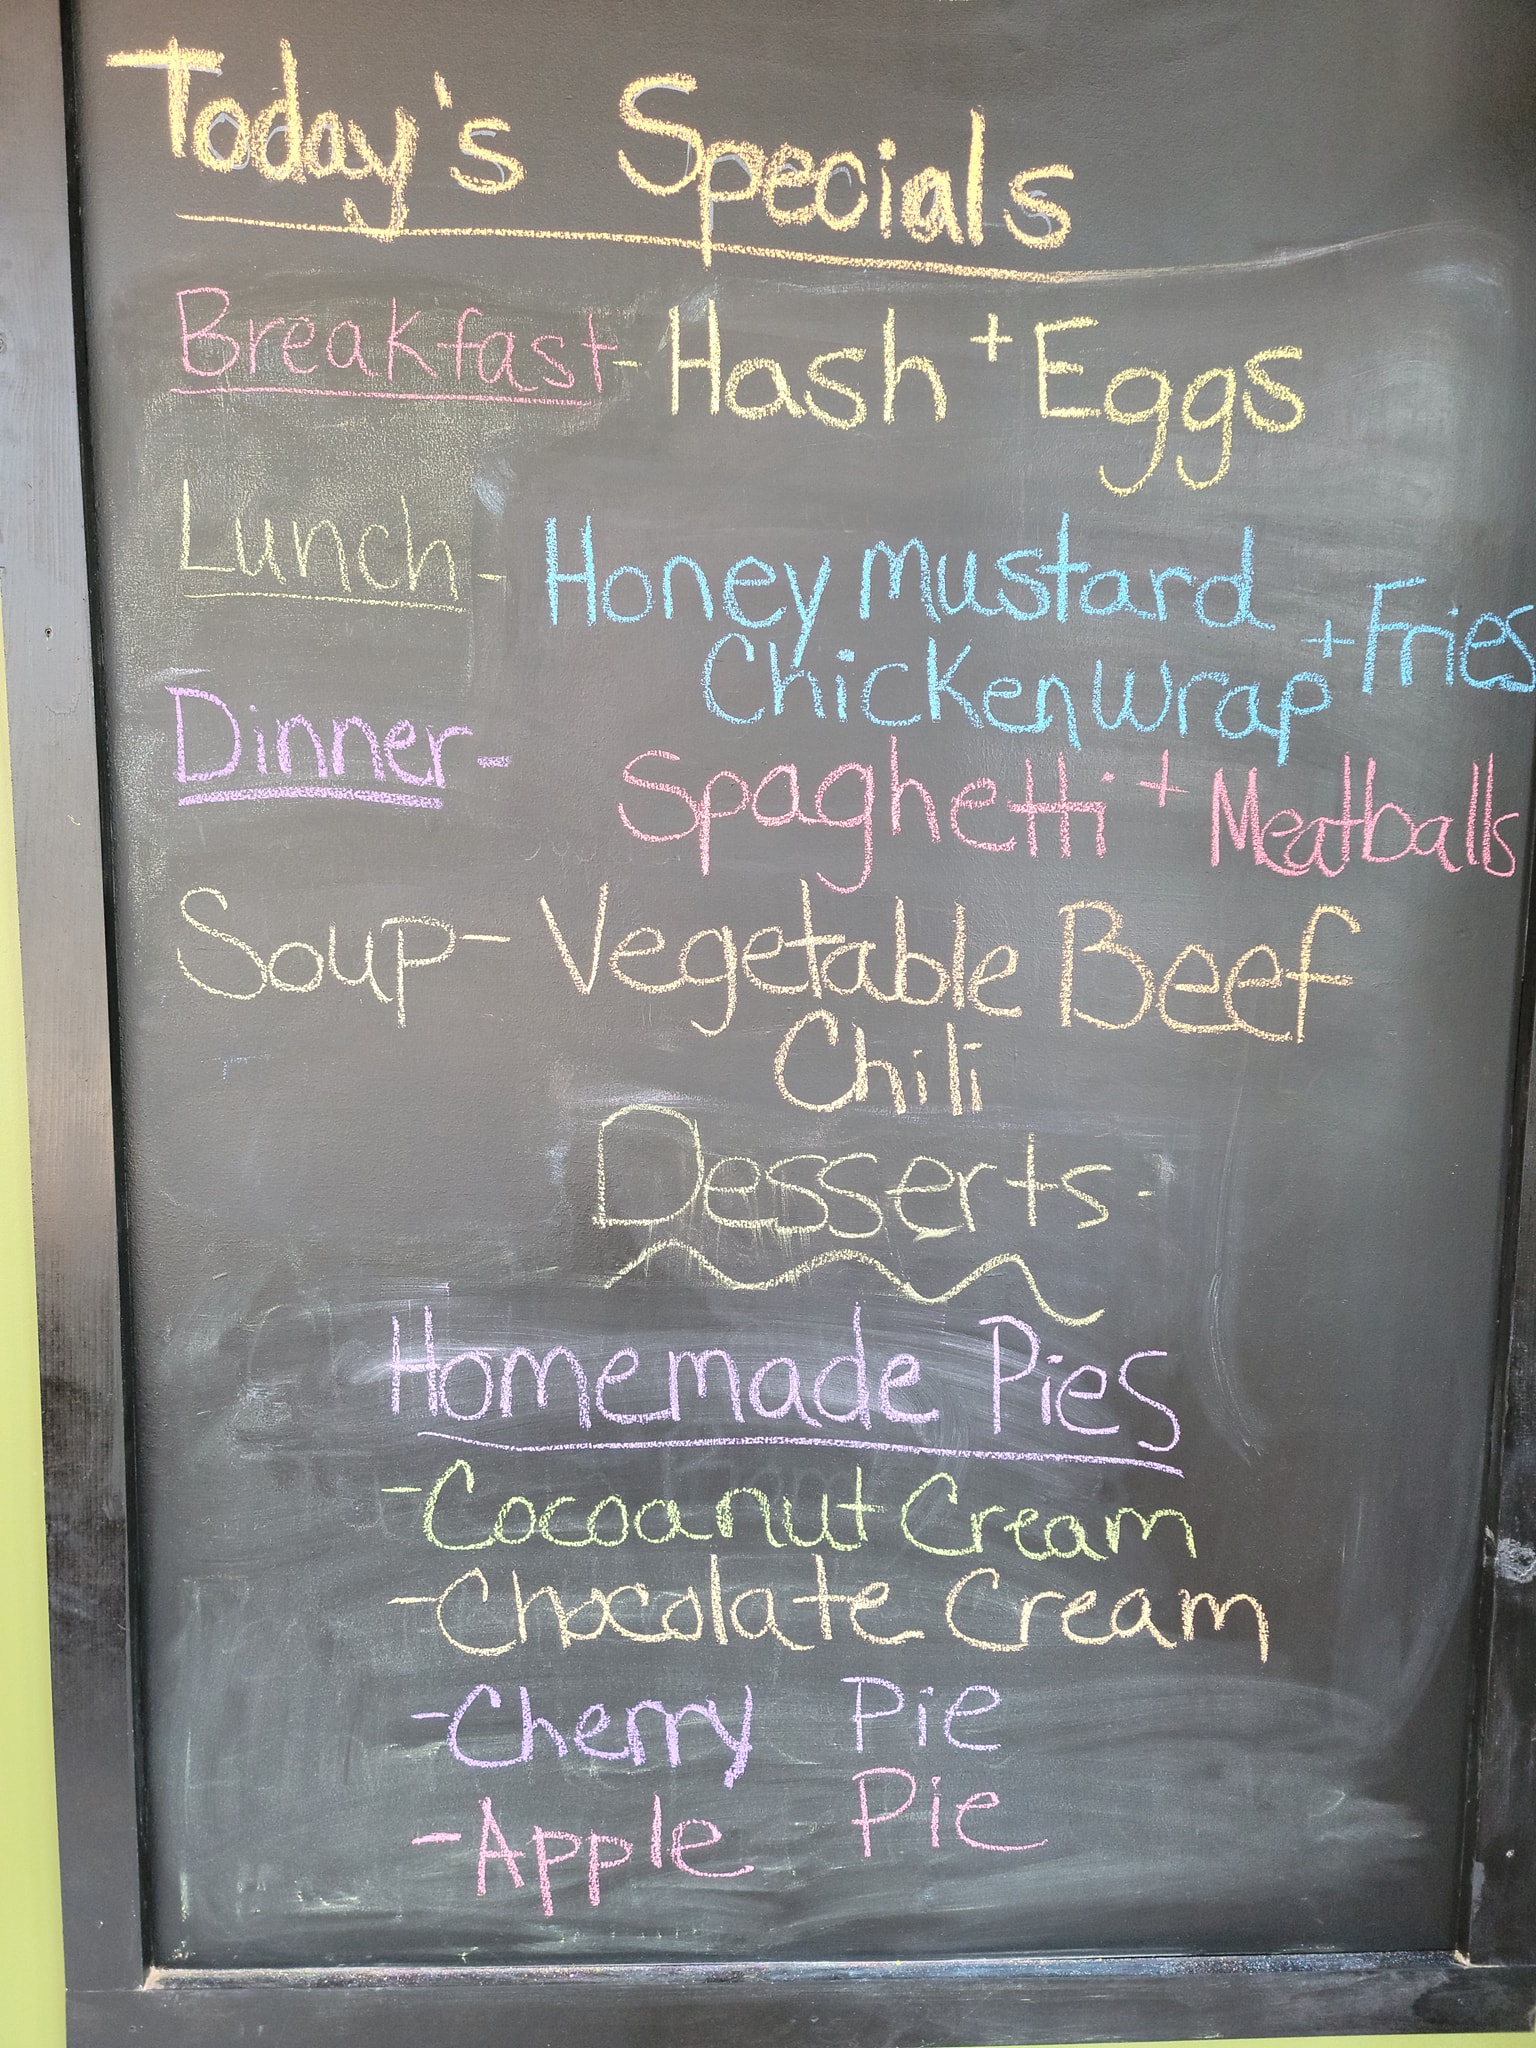 Today's Specials
Breakfast - Hash + Eggs
Lunch - Honey Mustard
Chicken Wrap + Fries
Dinner - Spaghetti + Meatballs
Soup - Vegetable Beef
Chili
Desserts -
Homemade Pies
- Cocoanut Cream
- Chocolate Cream
- Cherry Pie
- Apple Pie